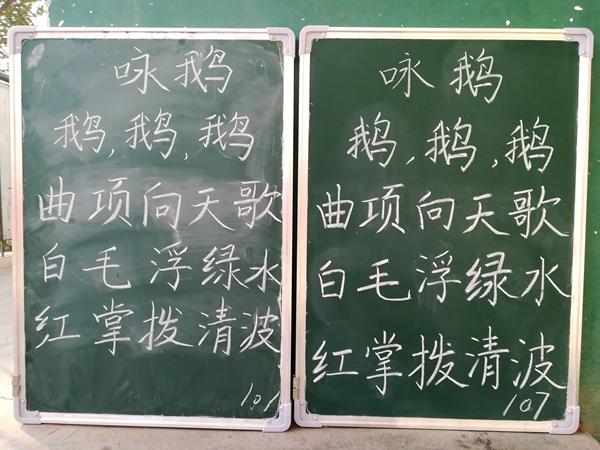 咏鹅
鹅,鹅,鹅
曲项向天歌
白毛浮绿水
红掌拨清波
101
咏鹅
鹅,鹅,鹅
曲项向天歌
白毛浮绿水
红掌拨清波
107